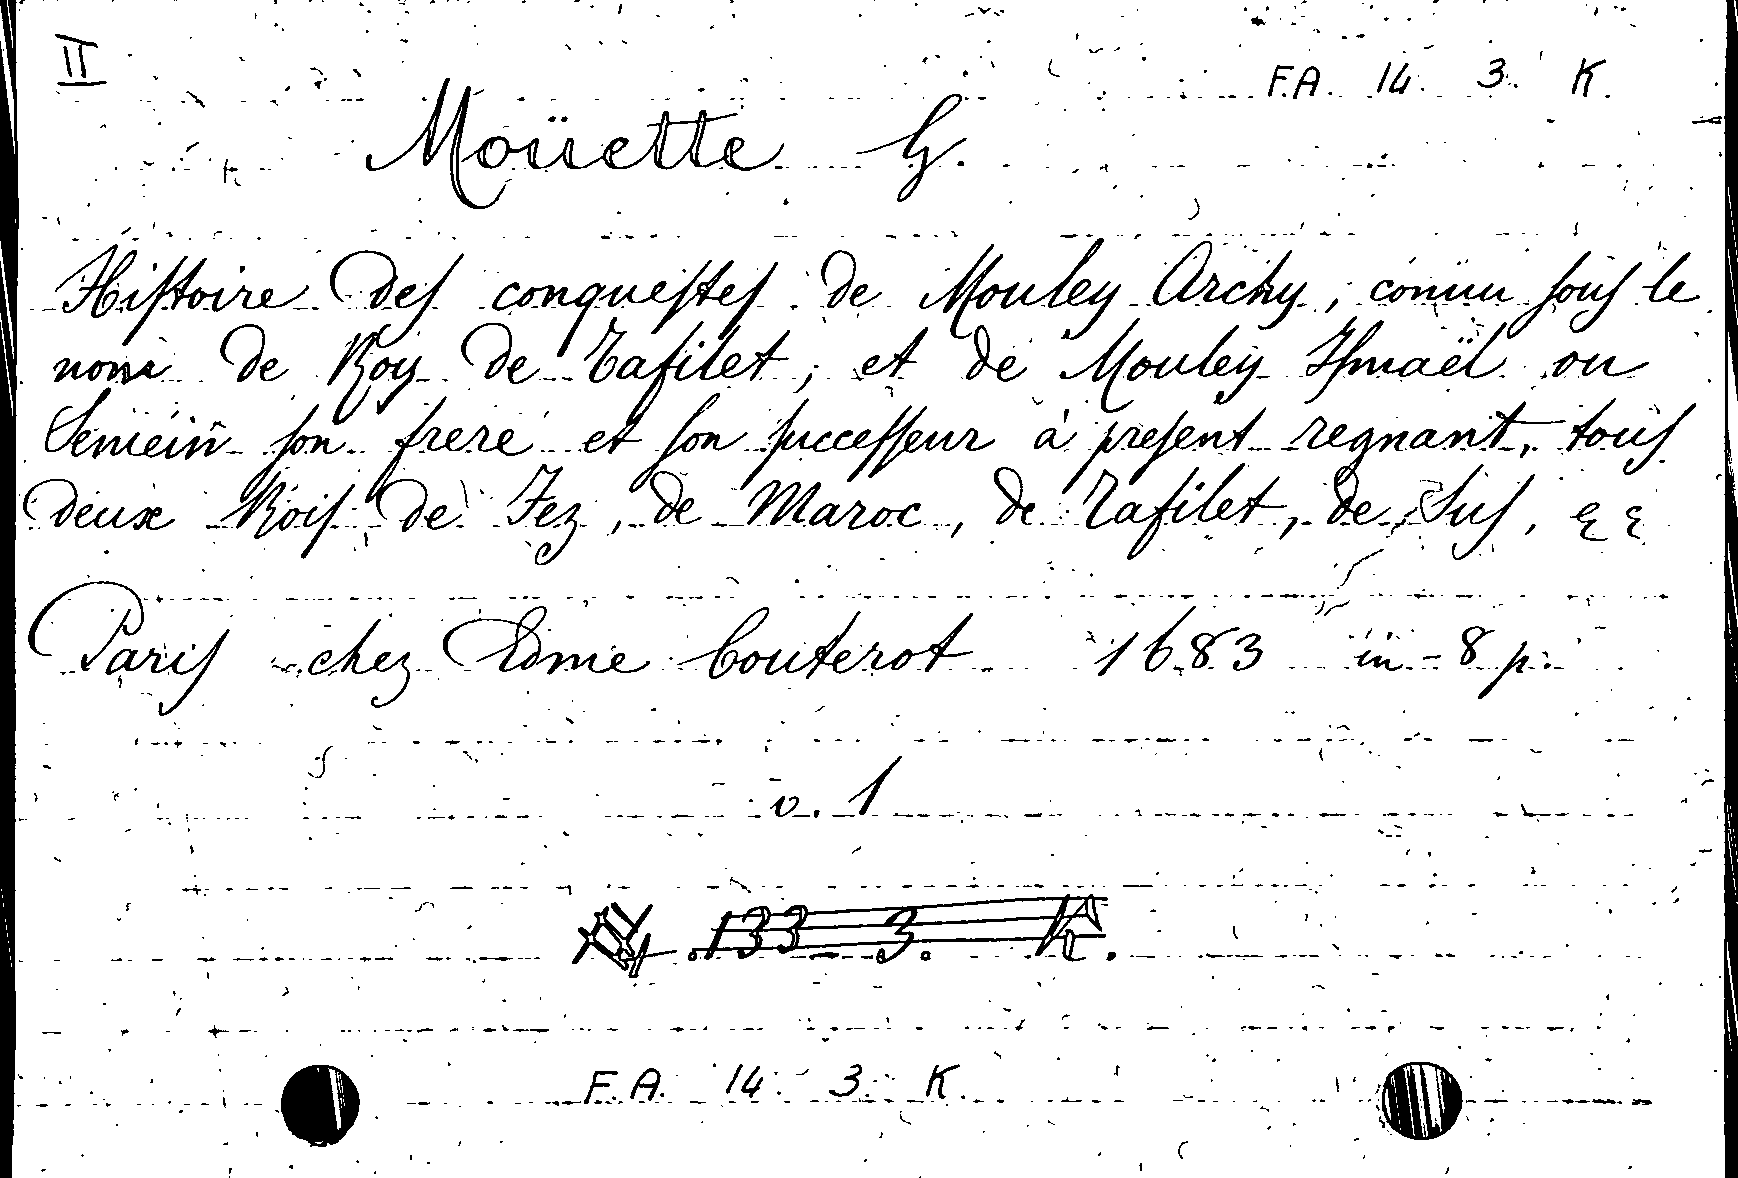 II
F.A. 14. 3. K.
Moüette G.
Hiſtoire des conqueſtes de Mouley Archy, connu ſous le
nom de Roy de Tafilet, et de Mouley Iſmaël ou
Semein ſon frere et ſon ſucceſſeur à preſent regnant, tous
deux Rois de Fez, de Maroc, de Tafilet, de Sus,
Paris chez Edme Couterot 1683 in-8 p.
v. 1
133 3. K.
F.A. 14. 3. K.